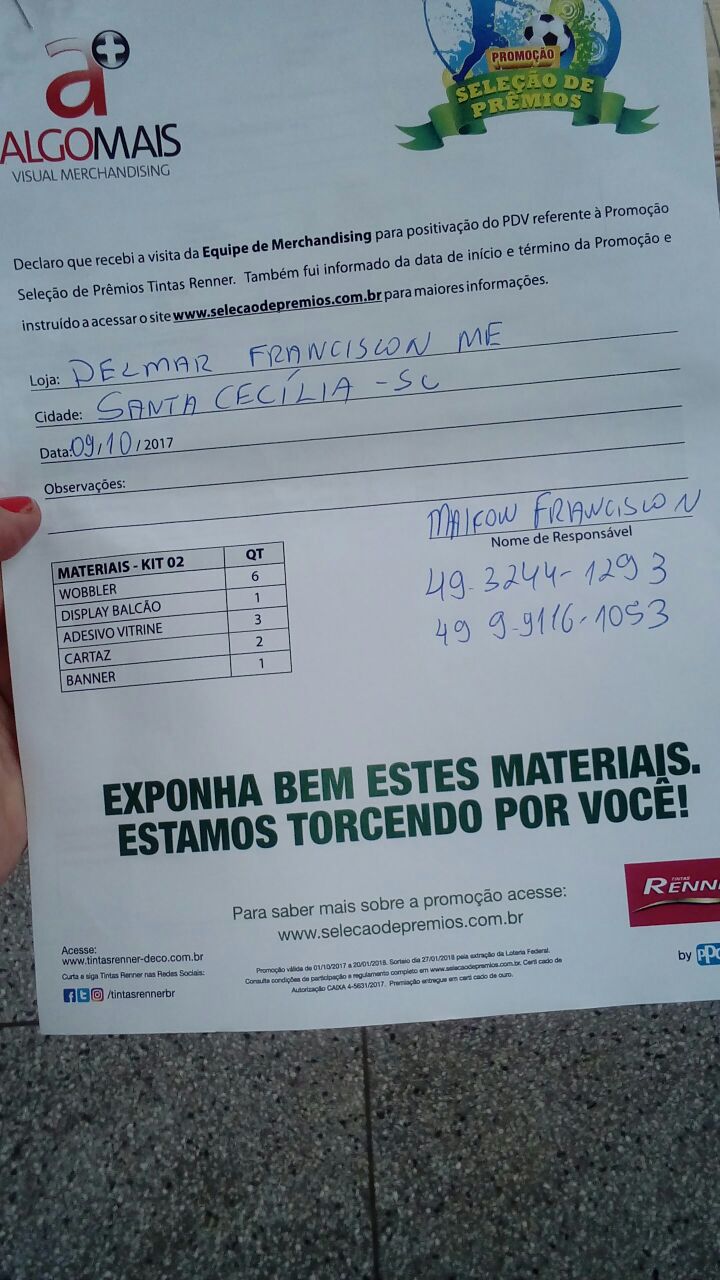 a+
ALGOMAIS
VISUAL MERCHANDISING
PROMOÇÃO
SELEÇÃO DE
PRÊMIOS
Declaro que recebi a visita da Equipe de Merchandising para positivação do PDV referente à Promoção
Seleção de Prêmios Tintas Renner. Também fui informado da data de início e término da Promoção e
instruído a acessar o site www.selecaodepremios.com.br para maiores informações.
Loja: DELMAR FRANCISCON ME
Cidade: SANTA CECÍLIA - SC
Data: 09/10/2017
Observações:
MAICON FRANCISCON
Nome de Responsável
49-3244-1293
49 9-9116-1053
MATERIAIS - KIT 02 QT
WOBBLER 6
DISPLAY BALCÃO 1
ADESIVO VITRINE 3
CARTAZ 2
BANNER 1
EXPONHA BEM ESTES MATERIAIS.
ESTAMOS TORCENDO POR VOCÊ!
Para saber mais sobre a promoção acesse:
www.selecaodepremios.com.br
TINTAS
RENN
by PPG
Acesse:
www.tintasrenner-deco.com.br
Curta e siga Tintas Renner nas Redes Sociais:
/tintasrennerbr
Promoção válida de 01/10/2017 a 20/01/2018. Sorteio dia 27/01/2018 pela extração da Loteria Federal.
Consulte condições de participação e regulamento completo em www.selecaodepremios.com.br. Certi cado de
Autorização CAIXA 4-5631/2017. Premiação entregue em certi cado de ouro.